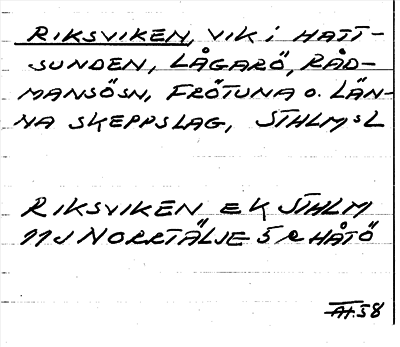 RIKSVIKEN, VIK i HATT-
SUNDEN, LÅGARÖ, RÅD-
MANSÖSN, FRÖTUNA o. LÄN-
NA SKEPPSLAG, STHLM:S L
RIKSVIKEN EK STHLM
11J NORRTÄLJE 5 R HÅTÖ
58